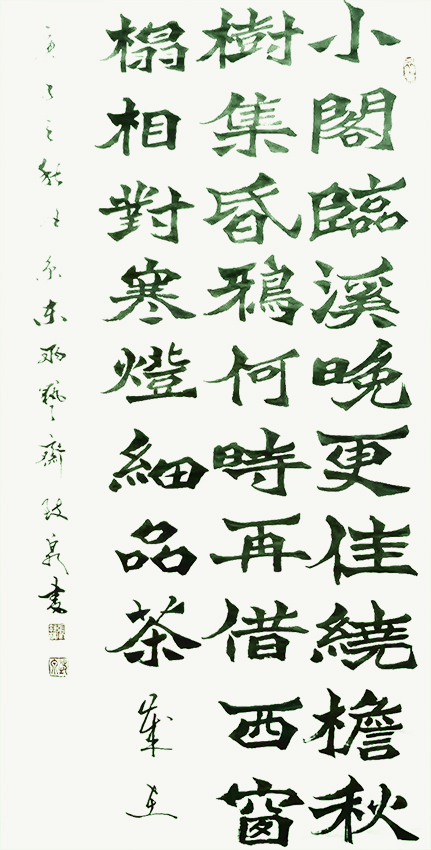 小閣臨溪晚更佳繞檐秋
樹集昏鴉何時再借西窗
榻相對寒燈細品茶歲在
之秋於京東藝齋泉書